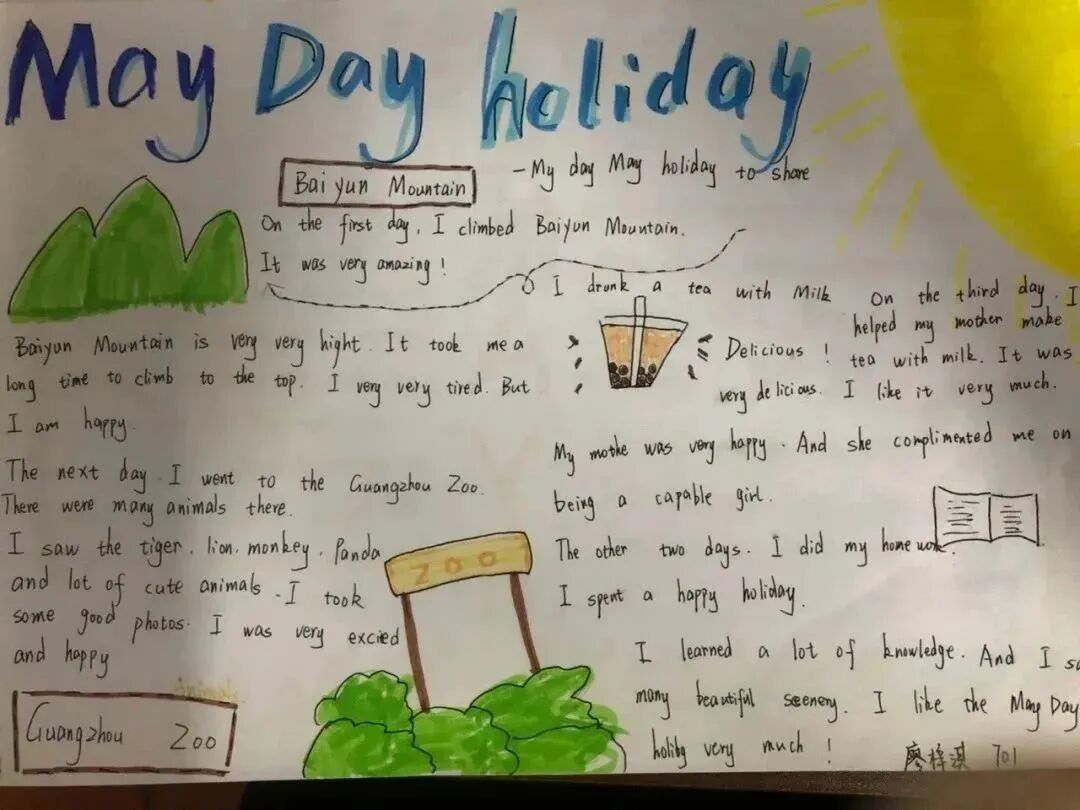 May Day holiday
-My day May holiday to share
Bai yun Mountain
On the first day, I climbed Baiyun Mountain.
It was very amazing!
Baiyun Mountain is very very hight. It took me a
long time to climb to the top. I very very tired. But
I am happy.
The next day. I went to the Guangzhou Zoo.
There were many animals there.
I saw the tiger. lion. monkey. Panda
and lot of cute animals. I took
some good photos. I was very excied
and happy
Guangzhou Zoo
ZOO
I drunk a tea with Milk
Delicious!
On the third day. I
helped my mother make
tea with milk. It was
very delicious. I like it very much.
My mothe was very happy. And she complimented me on
being a capable girl.
The other two days. I did my homework.
I spent a happy holiday.
I learned a lot of knowledge. And I sa
many beautiful seenery. I like the May Day
holiby very much!
廖梓淇 701